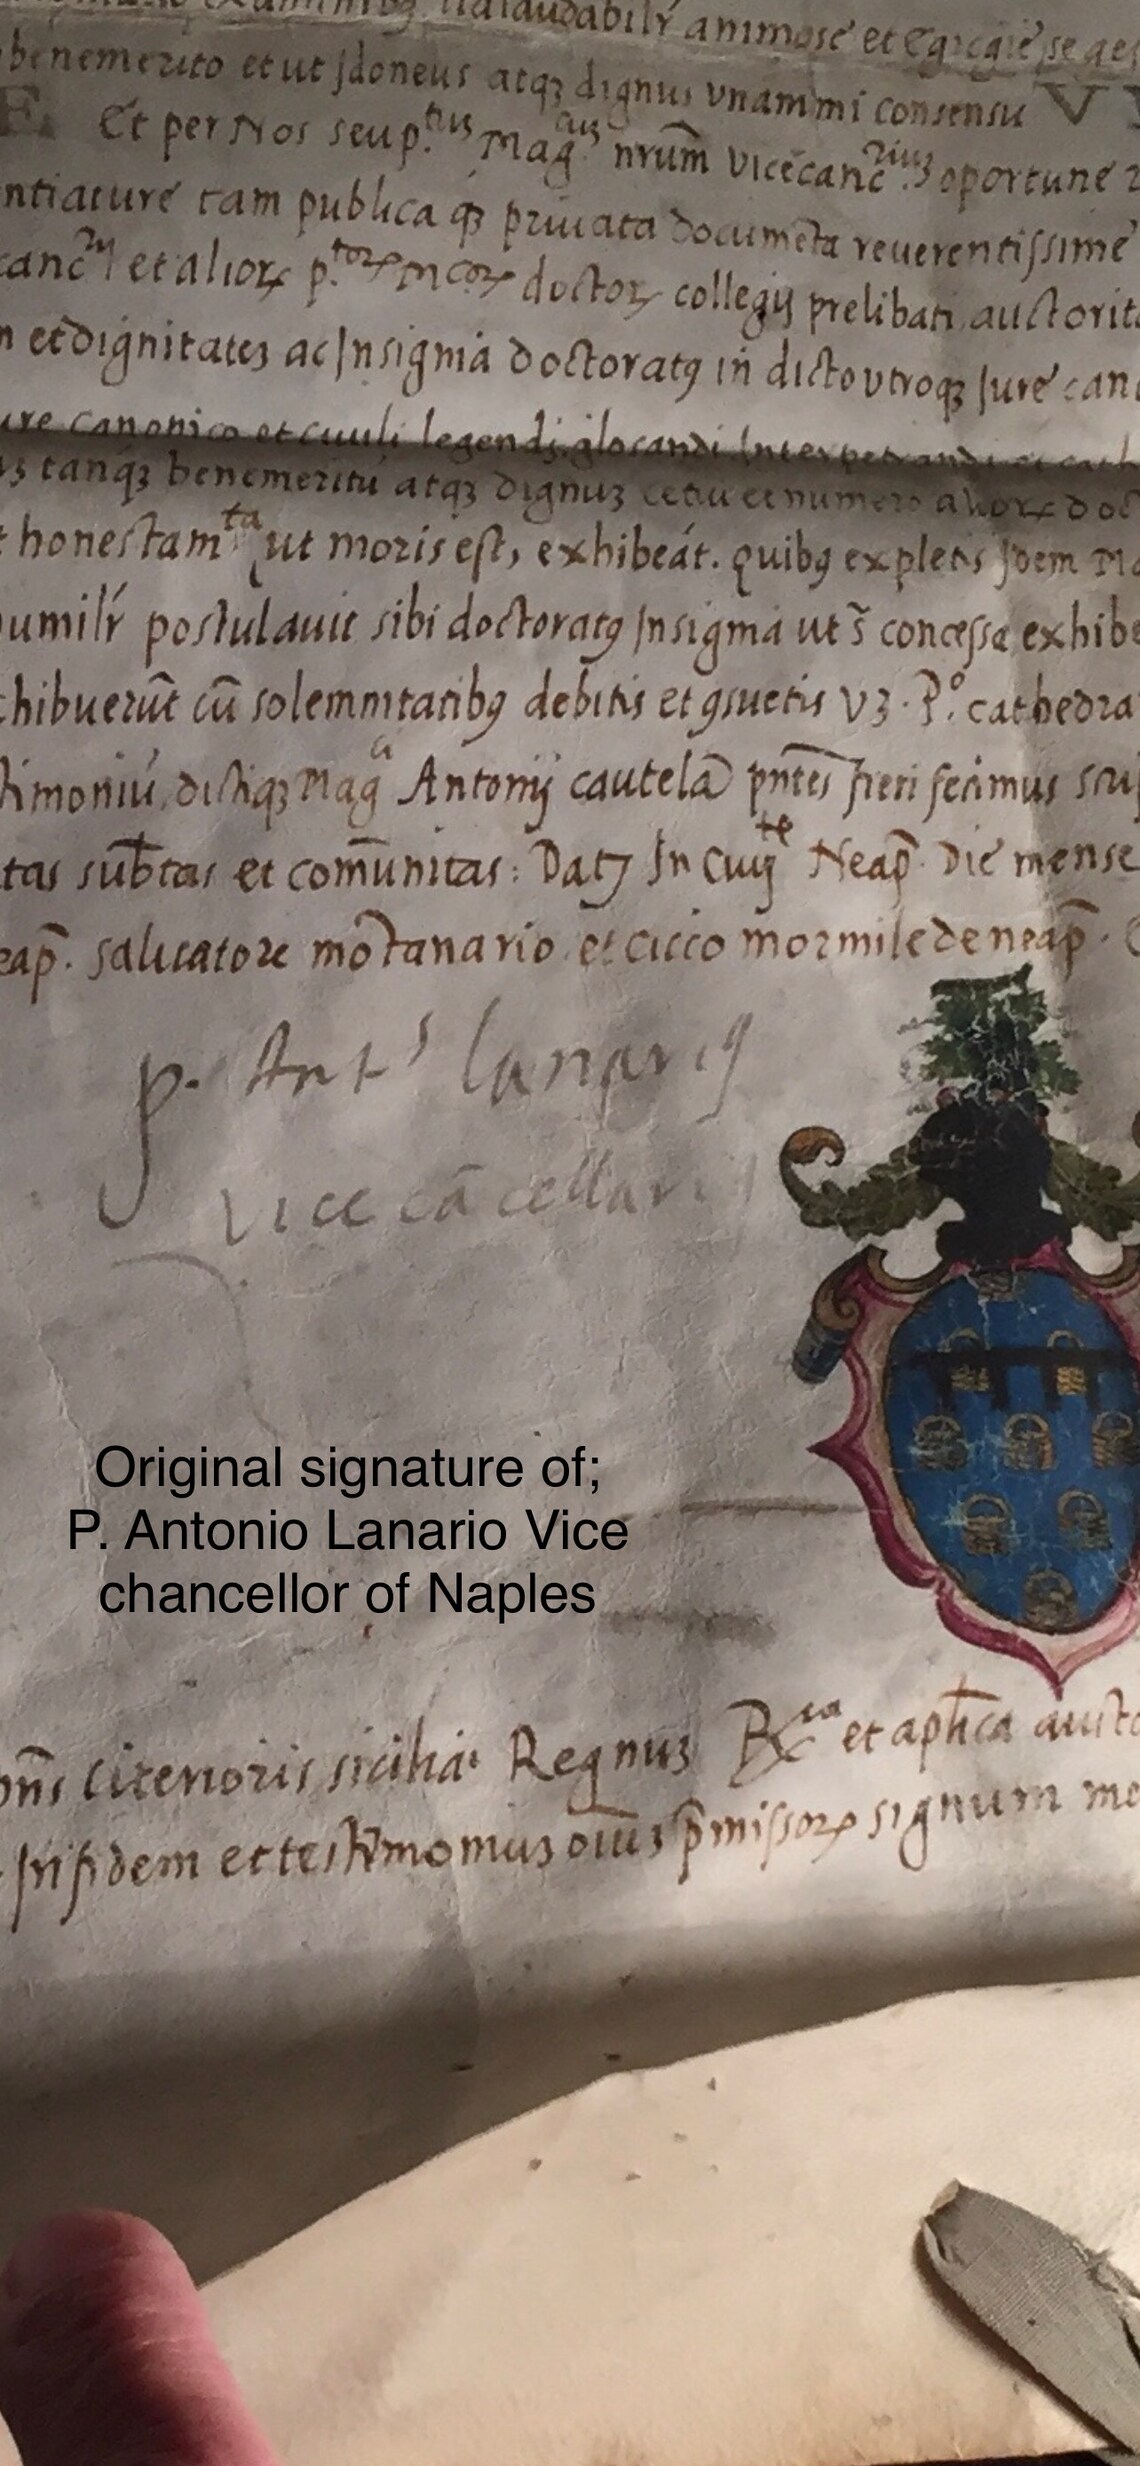 animose et Egregie se ges
benemerito et ut Jdoneus atqȝ dignus vnanimi consensu V
E. Et per Nos seu p.tus Mag.cus nrūm vicecanc.rius oportune
ntiature tam publica qȝ priuata documēta reuerentissime
canc.rij et alioꝝ p.toꝝ mcoꝝ doctoꝝ collegij prelibati auctorit
et dignitates ac Jnsignia doctoratꝰ in dicto vtroqȝ Jure can
ure canonico et ciuili legendi glosandi Interpetrandi et cath
tanqȝ benemeritū atqȝ dignuȝ cetu et numero alioꝝ doc
honestam.ta ut moris est, exhibeát. quibꝰ expletis Jdem Ma
umilr postulauit sibi doctoratꝰ Jnsignia ut s̄ concessa exhibe
hibuerūt cū solemnitatibꝰ debitis et ꝯsuetis vȝ. P.º cathedra
timoniū, distiqȝ Mag.ci Antonij cautelā pn̄tes fieri fecimus scri
tas sub̄tas et com̄unitas: Datȝ Jn Ciuj.te Neap̄. Die mense
eap̄. saluatore mōtanario et cicco mormile de neap̄.
p. Ant.s lanariꝰ
vice cācellari
Original signature of;
P. Antonio Lanario Vice
chancellor of Naples
citerioris siciliæ Regnuȝ R.ia et ap̄lica aucto
fidem et testimoniuȝ oīuȝ p̄missoꝝ signum me